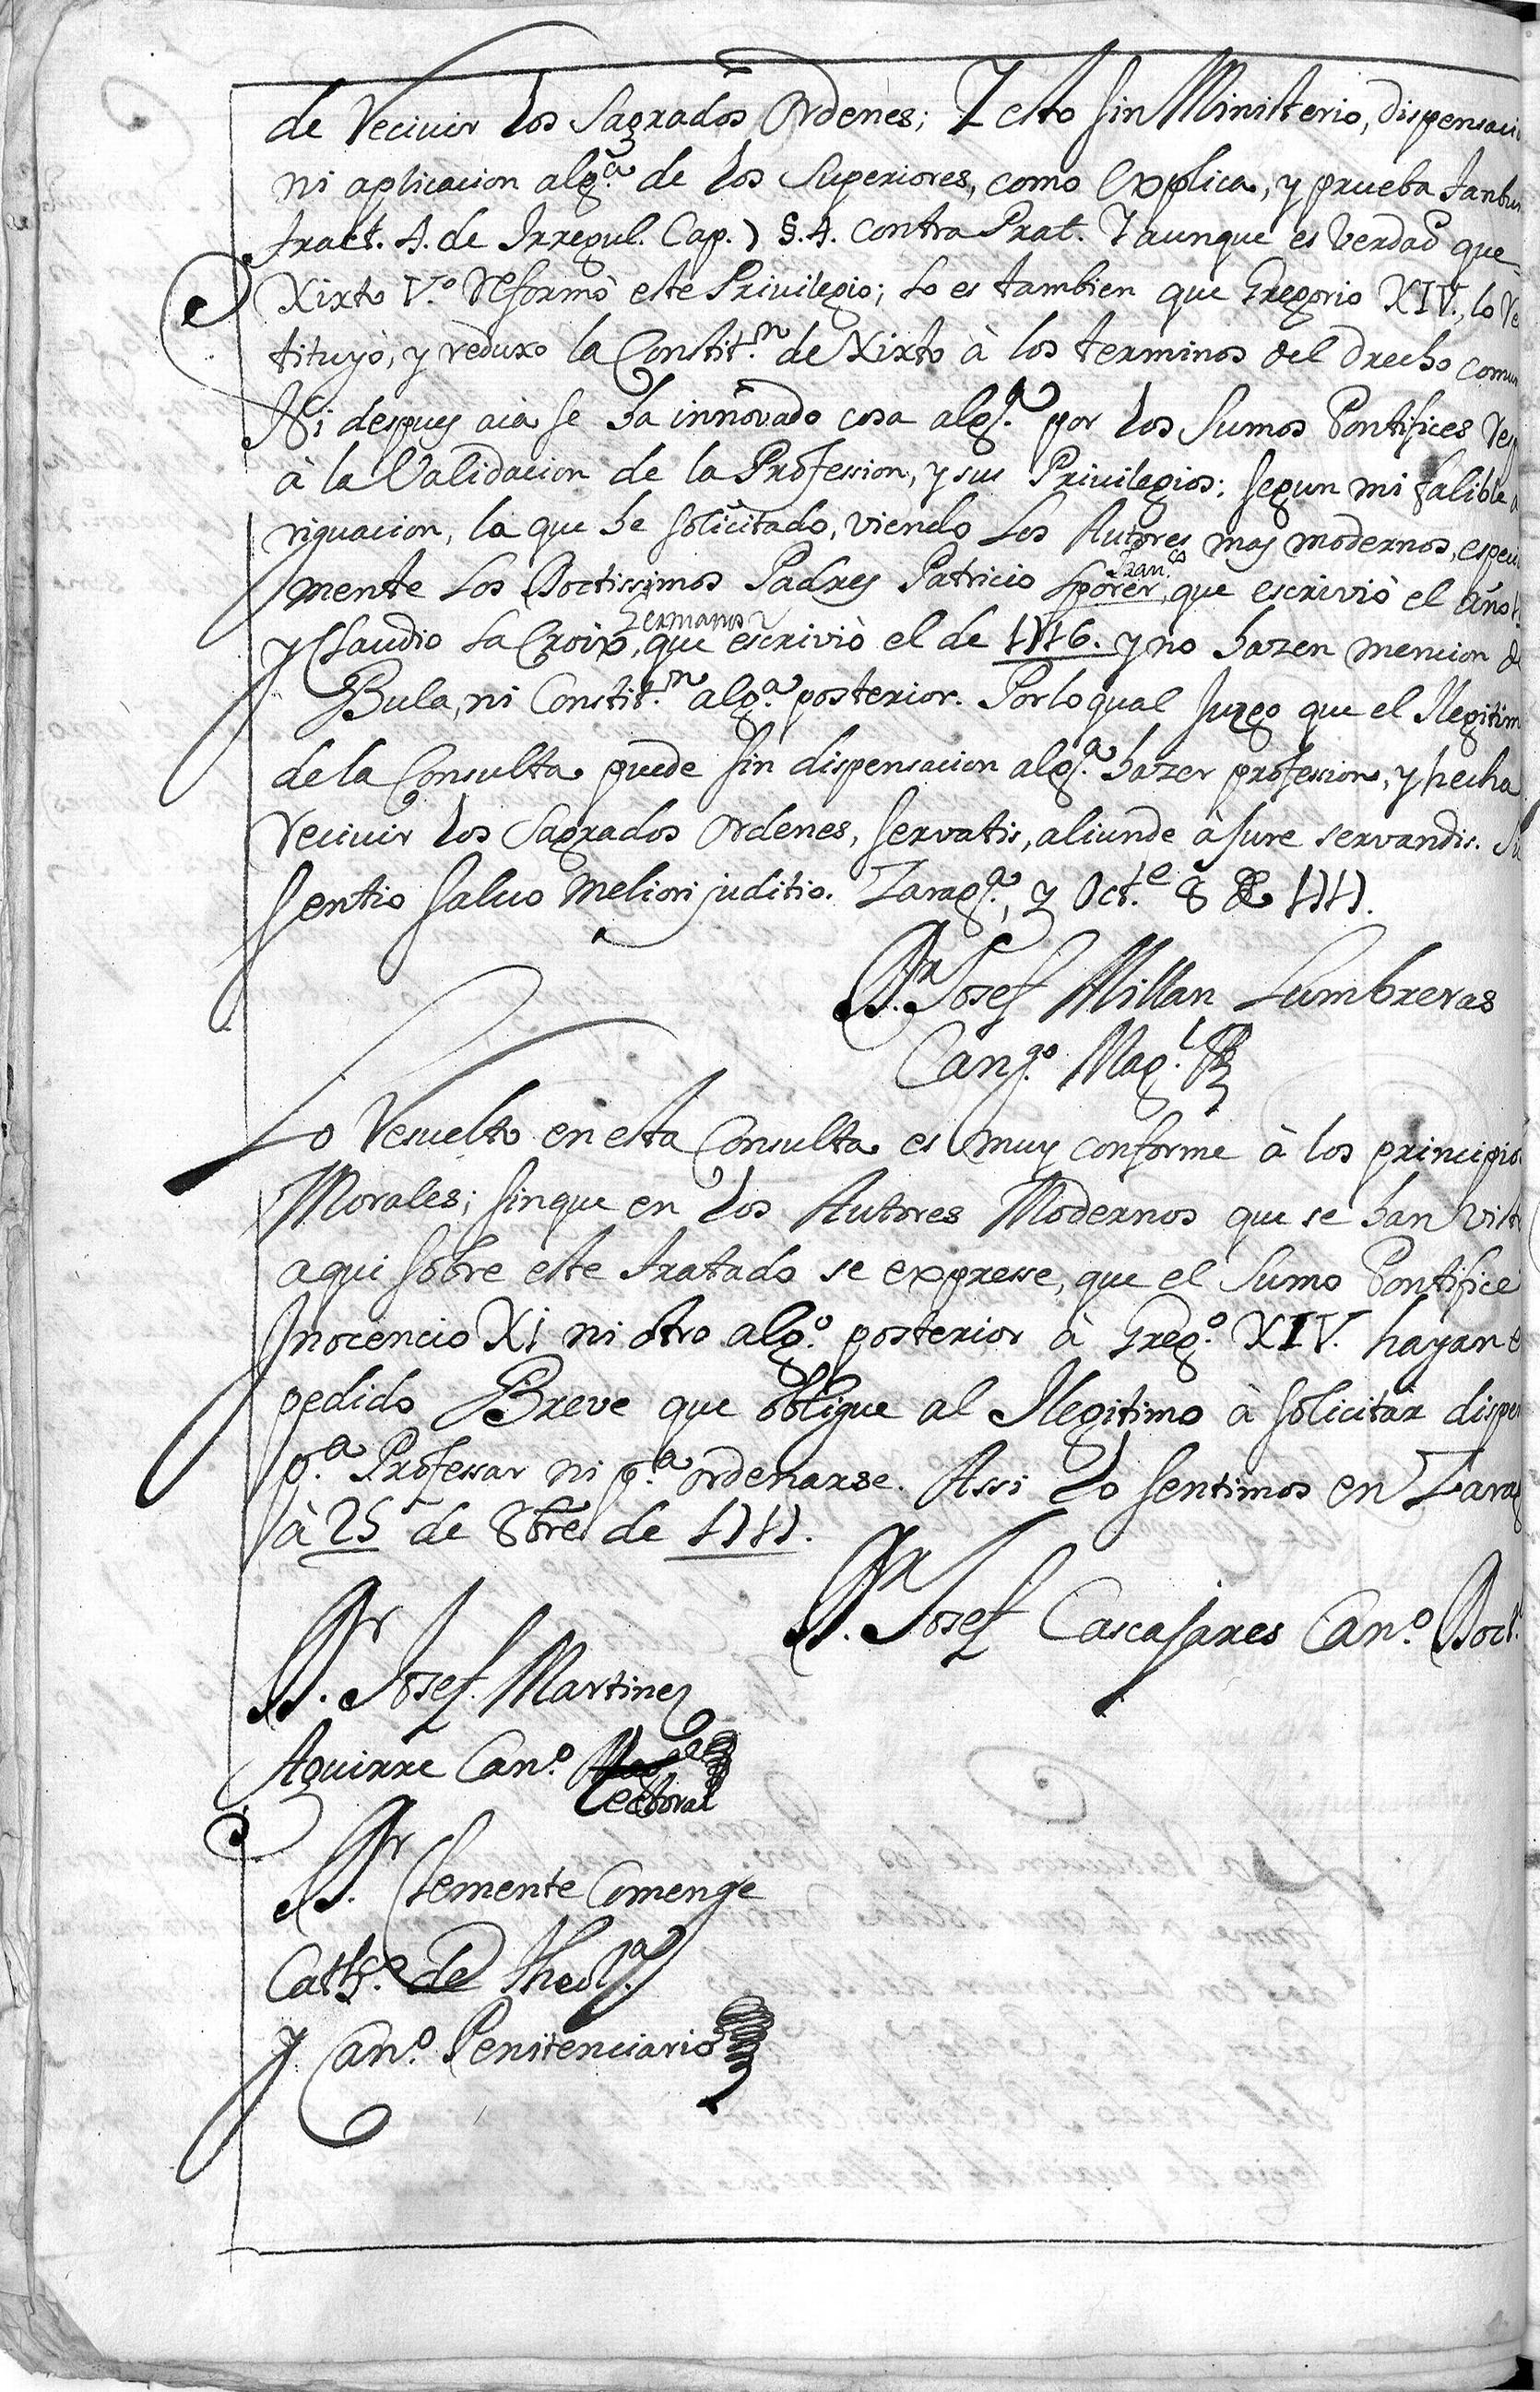 de Recivir los Sagrados Ordenes; Y esto sin Ministerio, dispensaci
ni aplicacion alg.ª de los Superiores, como explica, y prueba Tanbu
tract. 4. de Irregul. Cap. 7 §. 4. contra Prat. Y aunque es Verdad que
Xixto V.º Reformò este Privilegio; Lo es tambien que Gregorio XIV., lo Re
tituyò, y reduxo la Constit.n de Xixto à los terminos del drecho comun
Ni despues acà se ha innovado cosa alg.ª por los Sumos Pontifices Res
à la Validacion de la Profession, y sus Privilegios; segun mi falible a
riguacion, la que he solicitado, viendo los Autores mas modernos, especi
mente Los Doctissimos Padres Patricio Sporer, Fran.co que escriviò el año
y Claudio La Croix, Zermanos que escriviò el de 1716. y no hazen mencion d
Bula, ni Constit.n alg.ª posterior. Por lo qual Juzgo que el Ilegitim
de la Consulta puede sin dispensacion alg.ª hazer profession, y hecha
recivir los Sagrados Ordenes, servatis, aliunde à jure servandis. Si
sentio salvo meliori juditio. Zarag.ª, y Oct.e 8 de 1717.
D.r Josef Millan Lumbreras
Can.go Mag.l
Lo Resuelto en esta Consulta es muy conforme à los principio
Morales; sin que en los Autores Modernos que se han visto
aqui sobre este tratado se expresse, que el Sumo Pontifice
Inocencio XI ni otro alg.º posterior à Greg.º XIV. hayan e
pedido Breve que obligue al Ilegitimo à solicitar dispen
p.ª Professar ni p.ª ordenarse. Assi lo sentimos en Zarag
à 25 de 8bre de 1717.
D.r Josef Cascajares Can.º Doct.l
D.r Josef Martinez
Aguirre Can.º Lectoral
D.r Clemente Comenge
Cath.o de Theol.ª
y Can.º Penitenciario